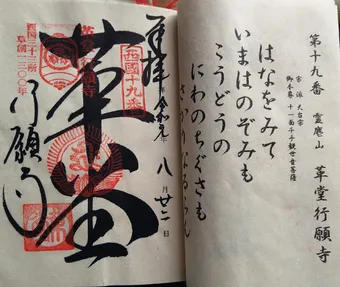 第十九番 靈麀山 革堂行願寺
宗派 天台宗
御本尊 十一面千手観世音菩薩
はなをみて
いまはのぞみも
こうどうの
にわのちぐさも
さかりなるらん
奉拝 令和元年 八月廿二日
西國十九番
革堂
行願寺
西国三十三所
草創1300年